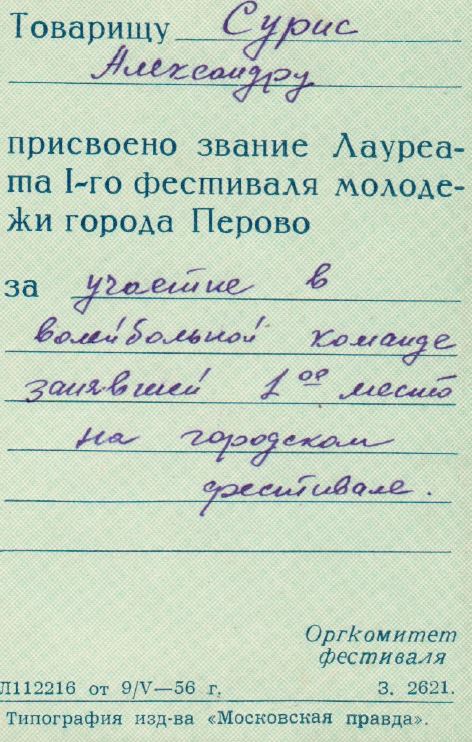 Товарищу Сурис
Александру
присвоено звание Лауреа-
та I-го фестиваля молоде-
жи города Перово
за участие в
волейбольной команде
занявшей 1ое место
на городском
фестивале.
Оргкомитет
фестиваля
Л112216 от 9/V—56 г. З. 2621.
Типография изд-ва «Московская правда».